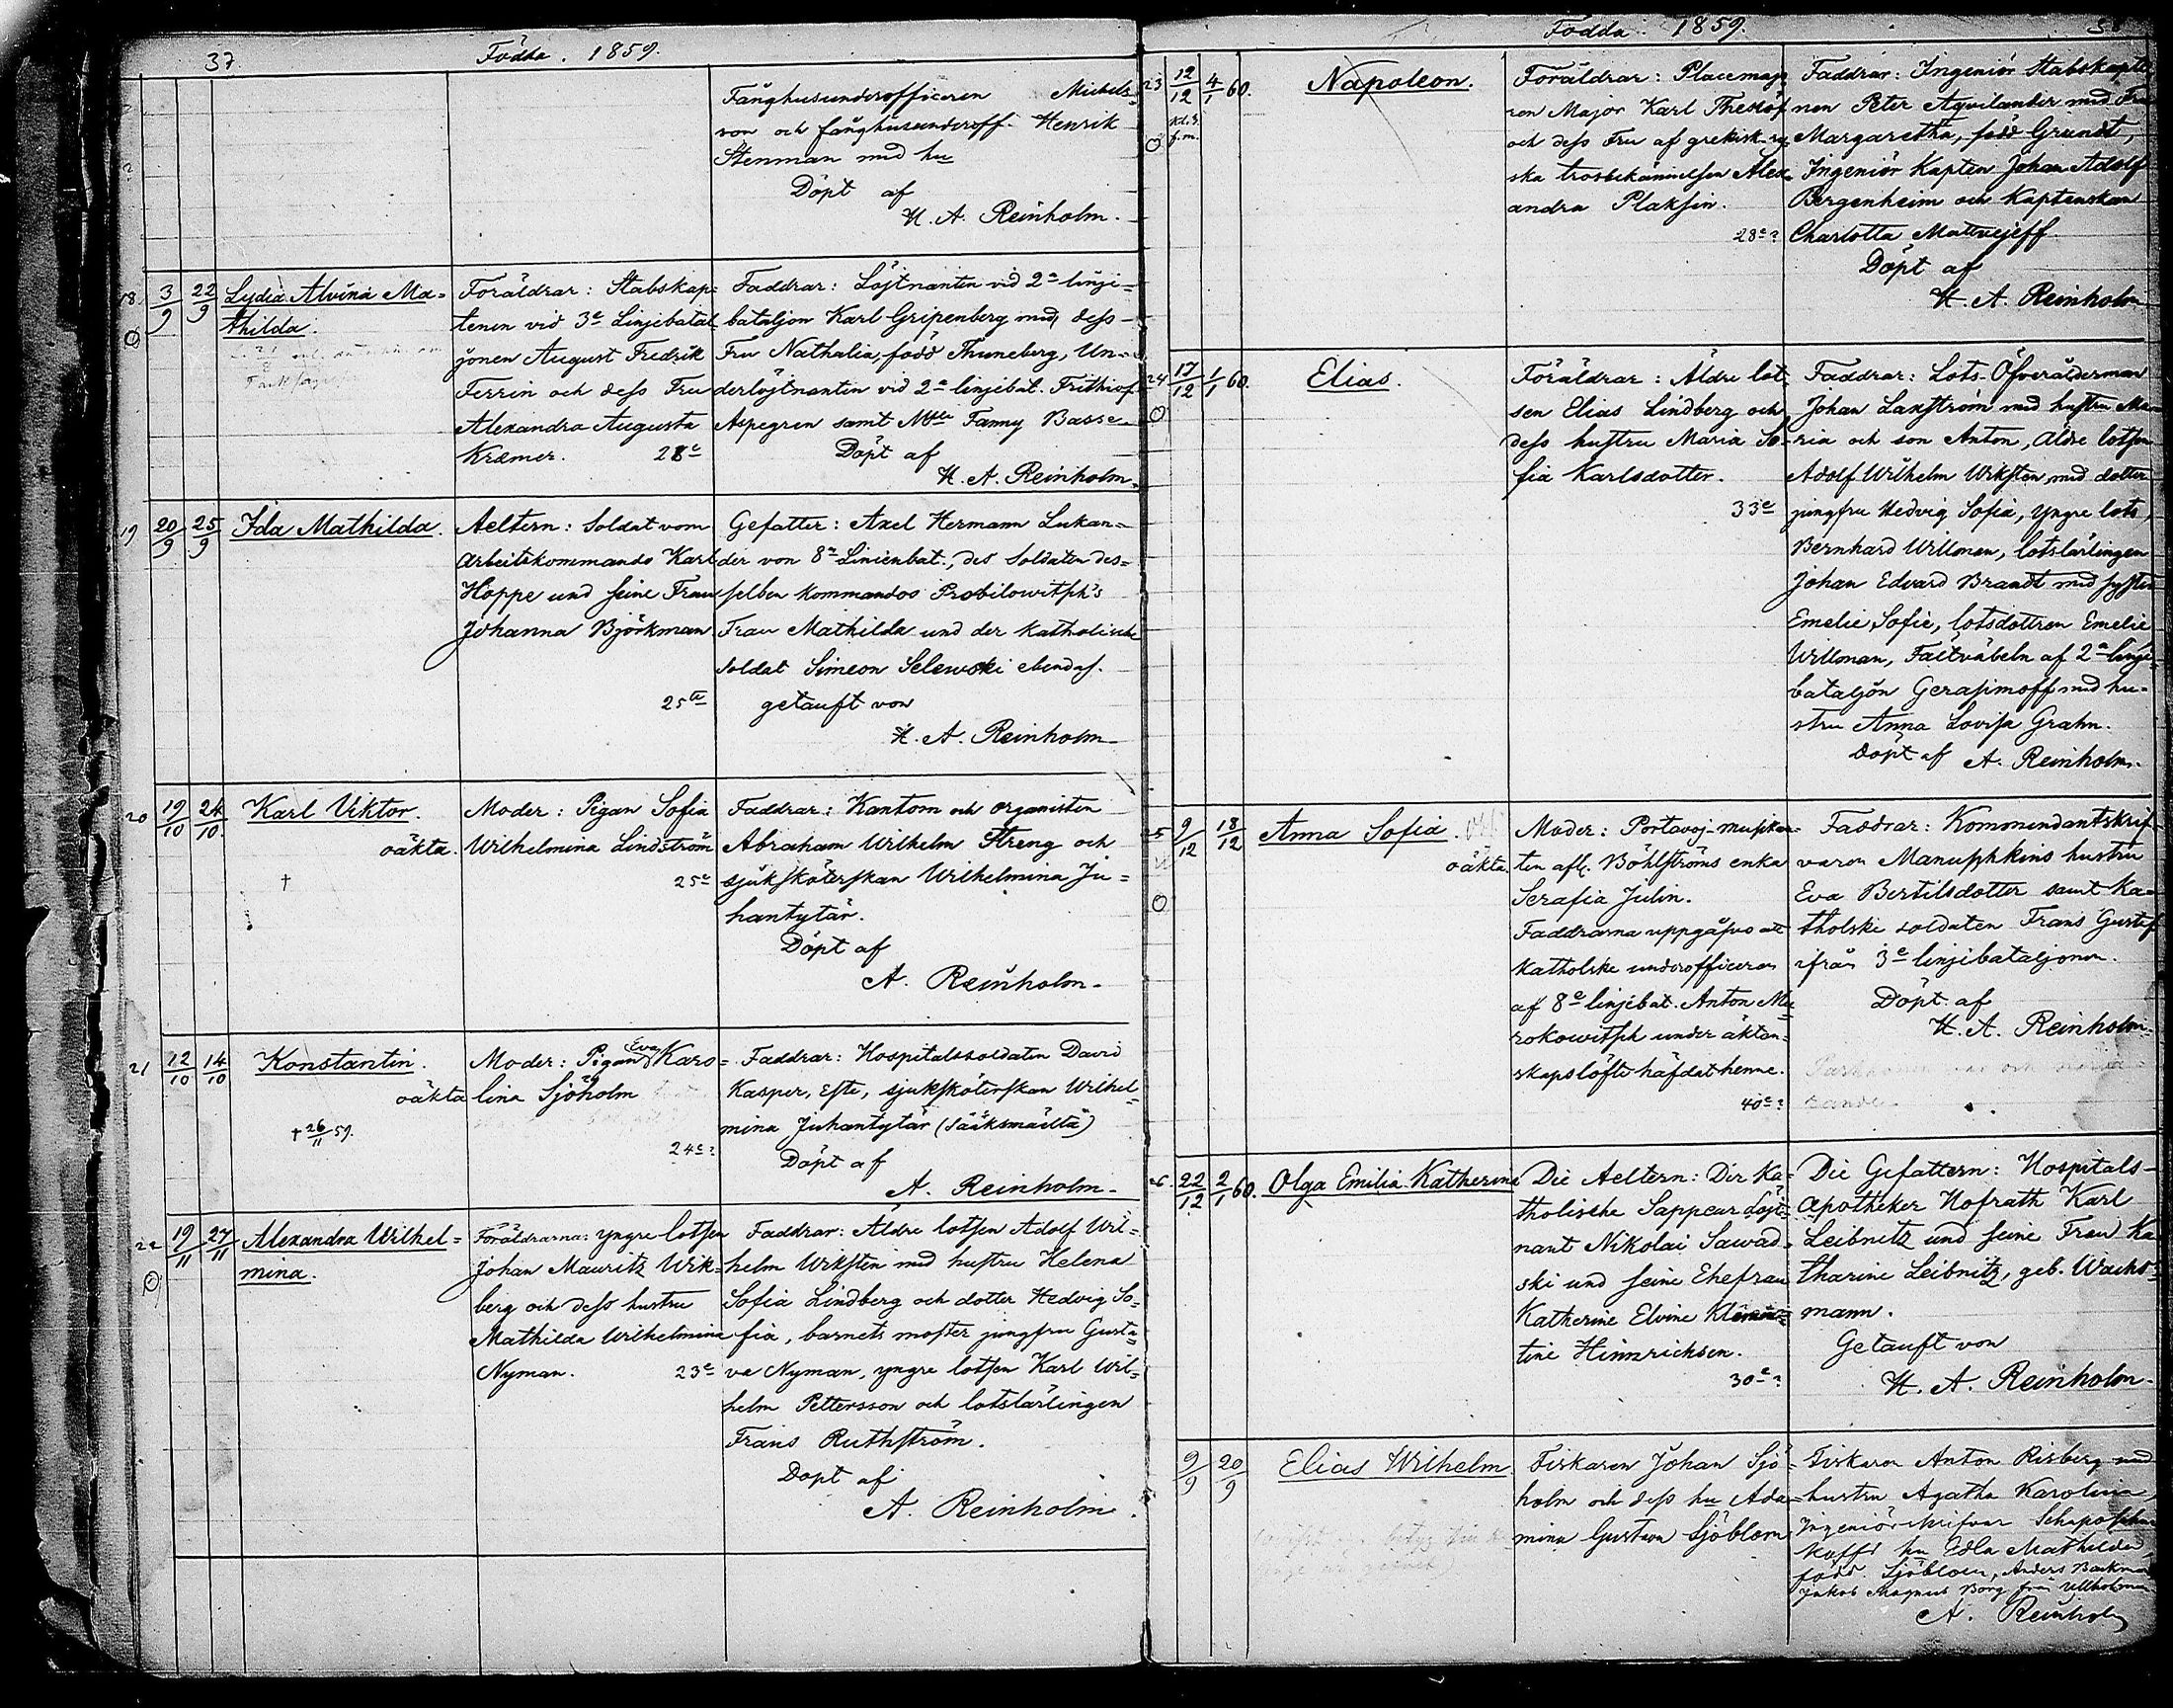 37.
Födda. 1859.
Fånghusunderofficeren Michels-
son och fånghusunderoff. Henrik
Stenman med hu
Döpt af
H. A. Reinholm.
18. 3/9 22/9 Lydia Alvina Ma-
thilda.
Föräldrar: Stabskap-
tenen vid 3e Linjebatal-
jonen August Fredrik
Ferrin och dess Fru
Alexandra Augusta
Kræmer. 28e
Faddrar: Löjtnanten vid 2a linje-
bataljon Karl Gripenberg med dess
Fru Nathalia, född Thuneberg, Un-
derlöjtnanten vid 2a linjebat. Frithiof
Aspegren samt Mlle Fanny Basse
Döpt af
H. A. Reinholm.
19 20/9 25/9 Ida Mathilda.
Aeltern: Soldat vom
Arbeitskommando Karl
Hoppe und seine Frau
Johanna Björkman
25te
Gefatter: Axel Hermann Lukan-
der von 8n Linienbat., des Soldaten des-
selben Kommandos Probilowitsh's
Frau Mathilda und der Katholische
Soldat Simeon Selewski ebendas.
getauft von
H. A. Reinholm
20 19/10 24/10. Karl Viktor.
oäkta.
†
Moder: Pigan Sofia
Wilhelmina Lindström
25e
Faddrar: Kantorn och organisten
Abraham Wilhelm Streng och
sjuksköterskan Wilhelmina Ju-
hantytär.
Döpt af
A. Reinholm.
21 12/10 14/10 Konstantin.
oäkta
† 26/11 59.
Moder: Pigan Eva Karo-
lina Sjöholm
24e?
Faddrar: Hospitalssoldaten David
Kasper, Este, sjuksköterskan Wilhel-
mina Juhantytär (Sääksmäiltä)
Döpt af
A. Reinholm.
22 19/11 27/11 Alexandra Wilhel-
mina.
Föräldrarna: yngre lotsen
Johan Mauritz Wik-
berg och dess hustru
Mathilda Wilhelmina
Nyman. 23e
Faddrar: Äldre lotsen Adolf Wil-
helm Wiksten med hustru Helena
Sofia Lindberg och dotter Hedvig So-
fia, barnets moster jungfru Gusta-
va Nyman, yngre lotsen Karl Wil-
helm Pettersson och lotslärlingen
Frans Ruthström.
Döpt af
A. Reinholm.
Födda. 1859.
38
23 12/12 4/1 60. Napoleon.
Kl. 9.
f.m.
Föräldrar: Placemajo-
ren Major Karl Theslöf
och dess Fru af grekisk-ry-
ska trosbekännelsen Alex-
andra Plaksin.
28e?
Faddrar: Ingeniör Stabskapte-
nen Peter Aqvilander med Fru
Margaretha, född Grundt,
Ingeniör Kapten Johan Adolf
Bergenheim och Kaptenskan
Charlotta Mattvejeff
Döpt af
H. A. Reinholm
24 17/12 1/1 60. Elias.
Föräldrar: Äldre lot-
sen Elias Lindberg och
dess hustru Maria So-
fia Karlsdotter.
33e
Faddrar: Lots-Öfverålderman
Johan Laxström med hustru Ma-
ria och son Anton, äldre lotsen
Adolf Wilhelm Wiksten med dotter
jungfru Hedvig Sofia, yngre lots
Bernhard Willman, lotslärlingen
Johan Edvard Brandt med syster
Emelie Sofie, lotsdottren Emelie
Willman, Fältväbeln af 2a linje-
bataljon Gerasimoff med hu-
stru Anna Lovisa Grahn.
Döpt af A. Reinholm.
25 9/12 18/12 Anna Sofia.
oäkta.
Moder: Portavoj-musikan-
ten afl. Böhlströms enka
Serafia Julin.
Faddrarna uppgåfvo att
Katholske underofficeren
af 8e linjebat. Anton Mu-
rokowitsh under äkten-
skapslöfte häfdat henne.
40e?
Faddrar: Kommendantskrif-
varen Manushkins hustru
Eva Bertilsdotter samt Ka-
tholske soldaten Frans Gustef
ifrån 3e linjebataljonen.
Döpt af
H. A. Reinholm.
26. 22/12 2/1 60. Olga Emilia Katherine
Die Aeltern: Der Ka-
tholische Sappeur Löjt-
nant Nikolai Sawad-
ski und seine Ehefrau
Katherine Elvine Klemen-
tine Hinrichsen.
30e?
Die Gefattern: Hospitals-
Apotheker Hofrath Karl
Leibnitz und seine Frau Ka
tharine Leibnitz, geb. Wachs-
mann.
Getauft von
H. A. Reinholm.
9/9 20/9 Elias Wilhelm.
Fiskaren Johan Sjö-
holm och dess hu Ada-
mina Gustava Sjöblom
Fiskaren Anton Risberg med
hustru Agatha Karolina,
Ingeniörskrifvar Schaposchni
koffs hu Edla Mathilda,
född Sjöblom, Anders Backman
Jakob Magnus Borg från Ullholmen
A. Reinholm